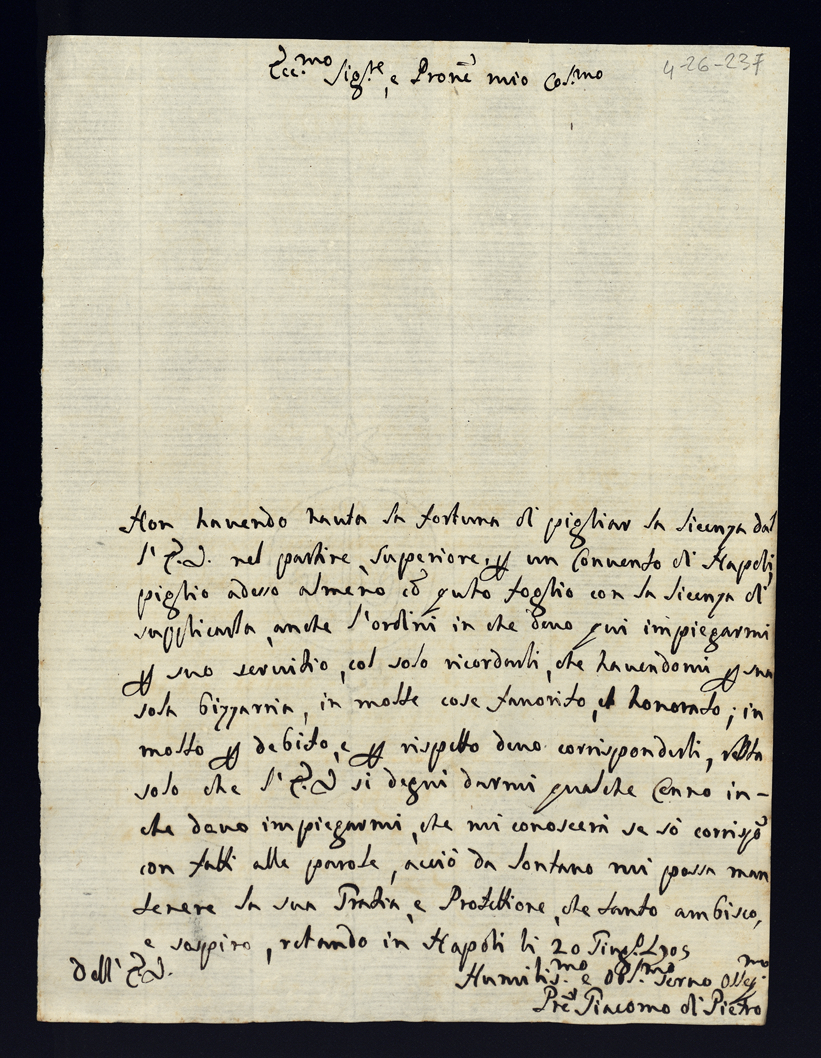 Ecc.mo Sig.re, e Prone mio Cos.mo
4-26-237
Non havendo hauta la fortuna di pigliar la licenza dal
l'E.V. nel partire, superiore, p un Convento di Napoli,
piglio adesso almeno cō questo foglio con la licenza di
supplicarla, anche l'ordini in che devo qui impiegarmi
p suo servitio, col solo ricordarli, che havendomi p sua
sola bizzarria, in molte cose favorito, et honorato; in
molto p debito, e p rispetto devo corrisponderli, resta
solo che l'E.V. si degni darmi qualche Cenno in-
che devo impiegarmi, che mi conoscerà se sò
con fatti alle parole, acciò da lontano mi possa man
tenere la sua Gratia, e Protettione, che tanto ambisco,
e sospiro, restando in Napoli li 20
Dell'E.V.
Humilis.mo e Servo
Pre Giacomo di Pietro